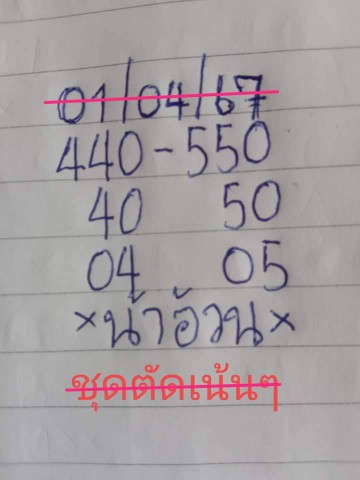 01/04/67
440-550
40 50
04 05
×น้าอ้วน×
ชุดตัดเน้นๆ